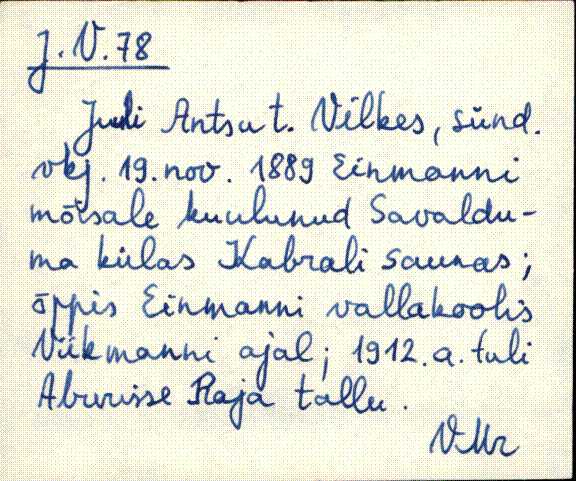 J. V. 78
Juuli Antsu t. Vilkes, sünd.
vkj. 19. nov. 1889 Einmanni
mõisale kuulunud Savaldu-
ma külas Kabrali saunas;
õppis Einmanni vallakoolis
Viikmanni ajal; 1912. a. tuli
Aburisse Raja tallu.